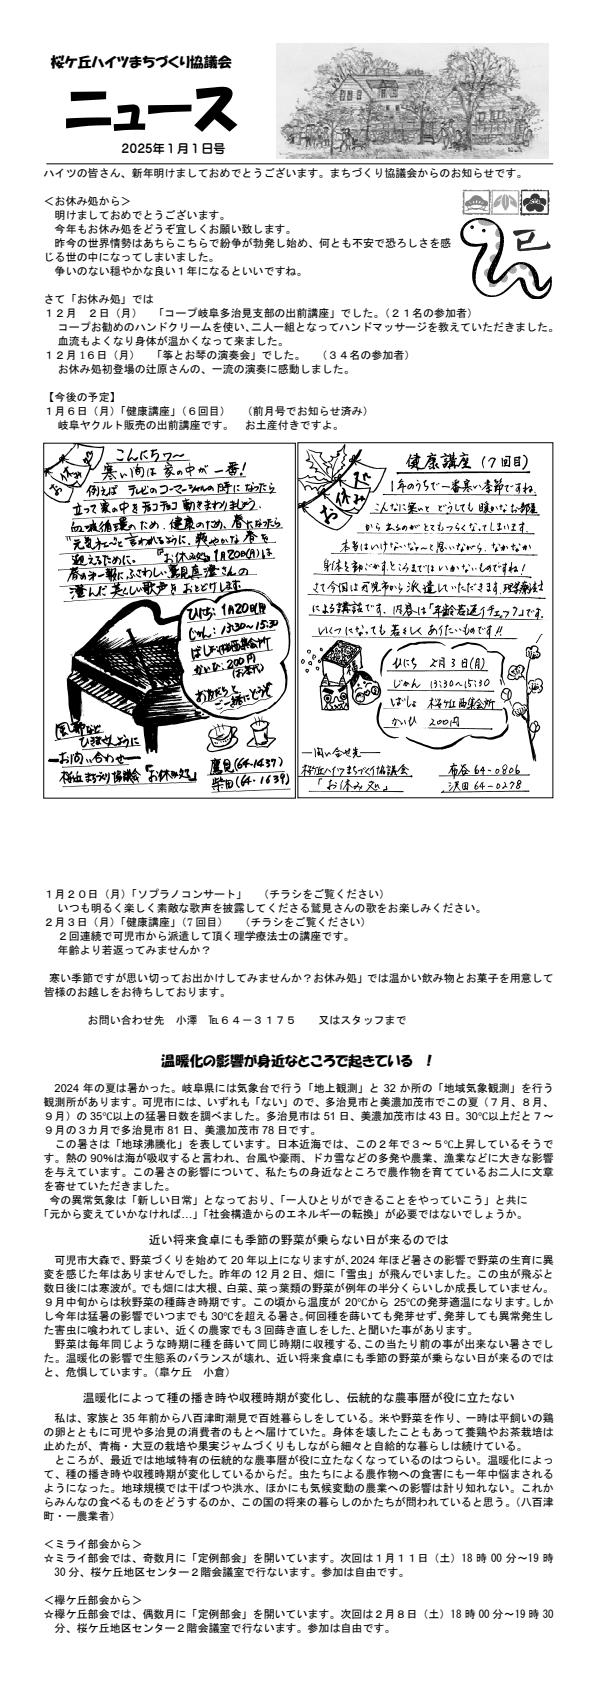 桜ケ丘ハイツまちづくり協議会
ニュース
2025年1月1日号
ハイツの皆さん、新年明けましておめでとうございます。まちづくり協議会からのお知らせです。
＜お休み処から＞
明けましておめでとうございます。
今年もお休み処をどうぞ宜しくお願い致します。
昨今の世界情勢はあちらこちらで紛争が勃発し始め、何とも不安で恐ろしさを感
じる世の中になってしまいました。
争いのない穏やかな良い１年になるといいですね。
巳
さて「お休み処」では
１２月　２日（月）　「コープ岐阜多治見支部の出前講座」でした。（２１名の参加者）
コープお勧めのハンドクリームを使い、二人一組となってハンドマッサージを教えていただきました。
血流もよくなり身体が温かくなって来ました。
１２月16日（月）　「筝とお琴の演奏会」でした。　（３４名の参加者）
お休み処初登場の辻原さんの、一流の演奏に感動しました。
【今後の予定】
１月６日（月）「健康講座」（６回目）　（前月号でお知らせ済み）
岐阜ヤクルト販売の出前講座です。　お土産付きですよ。
お休み処
こんにちワ～
寒い間は 家の中が一番!
例えば テレビのコマーシャルの時になったら
立って家の中をチョコチョコ動きまわりましょう.
血液循環のため. 健康のため、春になったら
"元気ネェ～"と言われるように、爽やかな春を
迎えるために。 『お休み処』1月20(月)は
春の第一報にふさわしい鷲見真澄さんの
澄んだ美しい歌声を おとどけします
ひにち: 1月20日(月)
じかん: 13:30～15:30
ばしょ: 桜ケ丘西集会所
かいひ: 200円
(お茶代)
お友だちと
ご一緒にどうぞ
風邪など
ひきませんように
―お問い合わせ―
桜ケ丘まちづくり協議会『お休み処』
鷹見(64-1437)
柴田(64-1639)
お休み処
健康講座（7回目）
1年のうちで一番寒い季節ですね.
こんなに寒いと どうしても 暖かいお部屋
から出るのがとてもつらくなってしまいます.
本当はいけないなぁ～と思いながら. なかなか
身体を動かすところまではいかないものですね!
さて今回は可児市から派遣していただきます. 理学療法士
による講話です. 内容は「年齢若返りチェック?」です.
いくつになっても 若々しく ありたいものです!!
ひにち　2月3日(月)
じかん　13:30～15:30
ばしょ　桜ケ丘西集会所
かいひ　200円
―問い合せ先―
桜ケ丘ハイツまちづくり協議会
「お休み処」
布谷 64-0806
沢田 64-0278
１月２０日（月）「ソプラノコンサート」　（チラシをご覧ください）
いつも明るく楽しく素敵な歌声を披露してくださる鷲見さんの歌をお楽しみください。
２月３日（月）「健康講座」（7回目）　（チラシをご覧ください）
２回連続で可児市から派遣して頂く理学療法士の講座です。
年齢より若返ってみませんか？
寒い季節ですが思い切ってお出かけしてみませんか？お休み処」では温かい飲み物とお菓子を用意して
皆様のお越しをお待ちしております。
お問い合わせ先　小澤　℡６４－３１７５　　又はスタッフまで
温暖化の影響が身近なところで起きている　！
2024 年の夏は暑かった。岐阜県には気象台で行う「地上観測」と 32 か所の「地域気象観測」を行う
観測所があります。可児市には、いずれも「ない」ので、多治見市と美濃加茂市でこの夏（７月、８月、
９月）の 35℃以上の猛暑日数を調べました。多治見市は 51 日、美濃加茂市は 43 日。30℃以上だと７～
９月の３カ月で多治見市 81 日、美濃加茂市 78 日です。
この暑さは「地球沸騰化」を表しています。日本近海では、この２年で３～５℃上昇しているそうで
す。熱の 90%は海が吸収すると言われ、台風や豪雨、ドカ雪などの多発や農業、漁業などに大きな影響
を与えています。この暑さの影響について、私たちの身近なところで農作物を育てているお二人に文章
を寄せていただきました。
今の異常気象は「新しい日常」となっており、「一人ひとりができることをやっていこう」と共に
「元から変えていかなければ…」「社会構造からのエネルギーの転換」が必要ではないでしょうか。
近い将来食卓にも季節の野菜が乗らない日が来るのでは
可児市大森で、野菜づくりを始めて 20 年以上になりますが、2024 年ほど暑さの影響で野菜の生育に異
変を感じた年はありませんでした。昨年の 12 月２日、畑に「雪虫」が飛んでいました。この虫が飛ぶと
数日後には寒波が。でも畑には大根、白菜、菜っ葉類の野菜が例年の半分くらいしか成長していません。
９月中旬からは秋野菜の種蒔き時期です。この頃から温度が 20℃から 25℃の発芽適温になります。しか
し今年は猛暑の影響でいつまでも 30℃を超える暑さ。何回種を蒔いても発芽せず、発芽しても異常発生し
た害虫に喰われてしまい、近くの農家でも３回蒔き直しをした、と聞いた事があります。
野菜は毎年同じような時期に種を蒔いて同じ時期に収穫する、この当たり前の事が出来ない暑さでし
た。温暖化の影響で生態系のバランスが壊れ、近い将来食卓にも季節の野菜が乗らない日が来るのでは
と、危惧しています。（皐ケ丘　小倉）
温暖化によって種の播き時や収穫時期が変化し、伝統的な農事暦が役に立たない
私は、家族と 35 年前から八百津町潮見で百姓暮らしをしている。米や野菜を作り、一時は平飼いの鶏
の卵とともに可児や多治見の消費者のもとへ届けていた。身体を壊したこともあって養鶏やお茶栽培は
止めたが、青梅・大豆の栽培や果実ジャムづくりもしながら細々と自給的な暮らしは続けている。
ところが、最近では地域特有の伝統的な農事暦が役に立たなくなっているのはつらい。温暖化によっ
て、種の播き時や収穫時期が変化しているからだ。虫たちによる農作物への食害にも一年中悩まされる
ようになった。地球規模では干ばつや洪水、ほかにも気候変動の農業への影響は計り知れない。これか
らみんなの食べるものをどうするのか、この国の将来の暮らしのかたちが問われていると思う。（八百津
町・一農業者）
＜ミライ部会から＞
☆ミライ部会では、奇数月に「定例部会」を開いています。次回は１月１１日（土）18 時 00 分～19 時
30 分、桜ケ丘地区センター２階会議室で行ないます。参加は自由です。
＜欅ケ丘部会から＞
☆欅ケ丘部会では、偶数月に「定例部会」を開いています。次回は２月８日（土）18 時 00 分～19 時 30
分、桜ケ丘地区センター２階会議室で行ないます。参加は自由です。